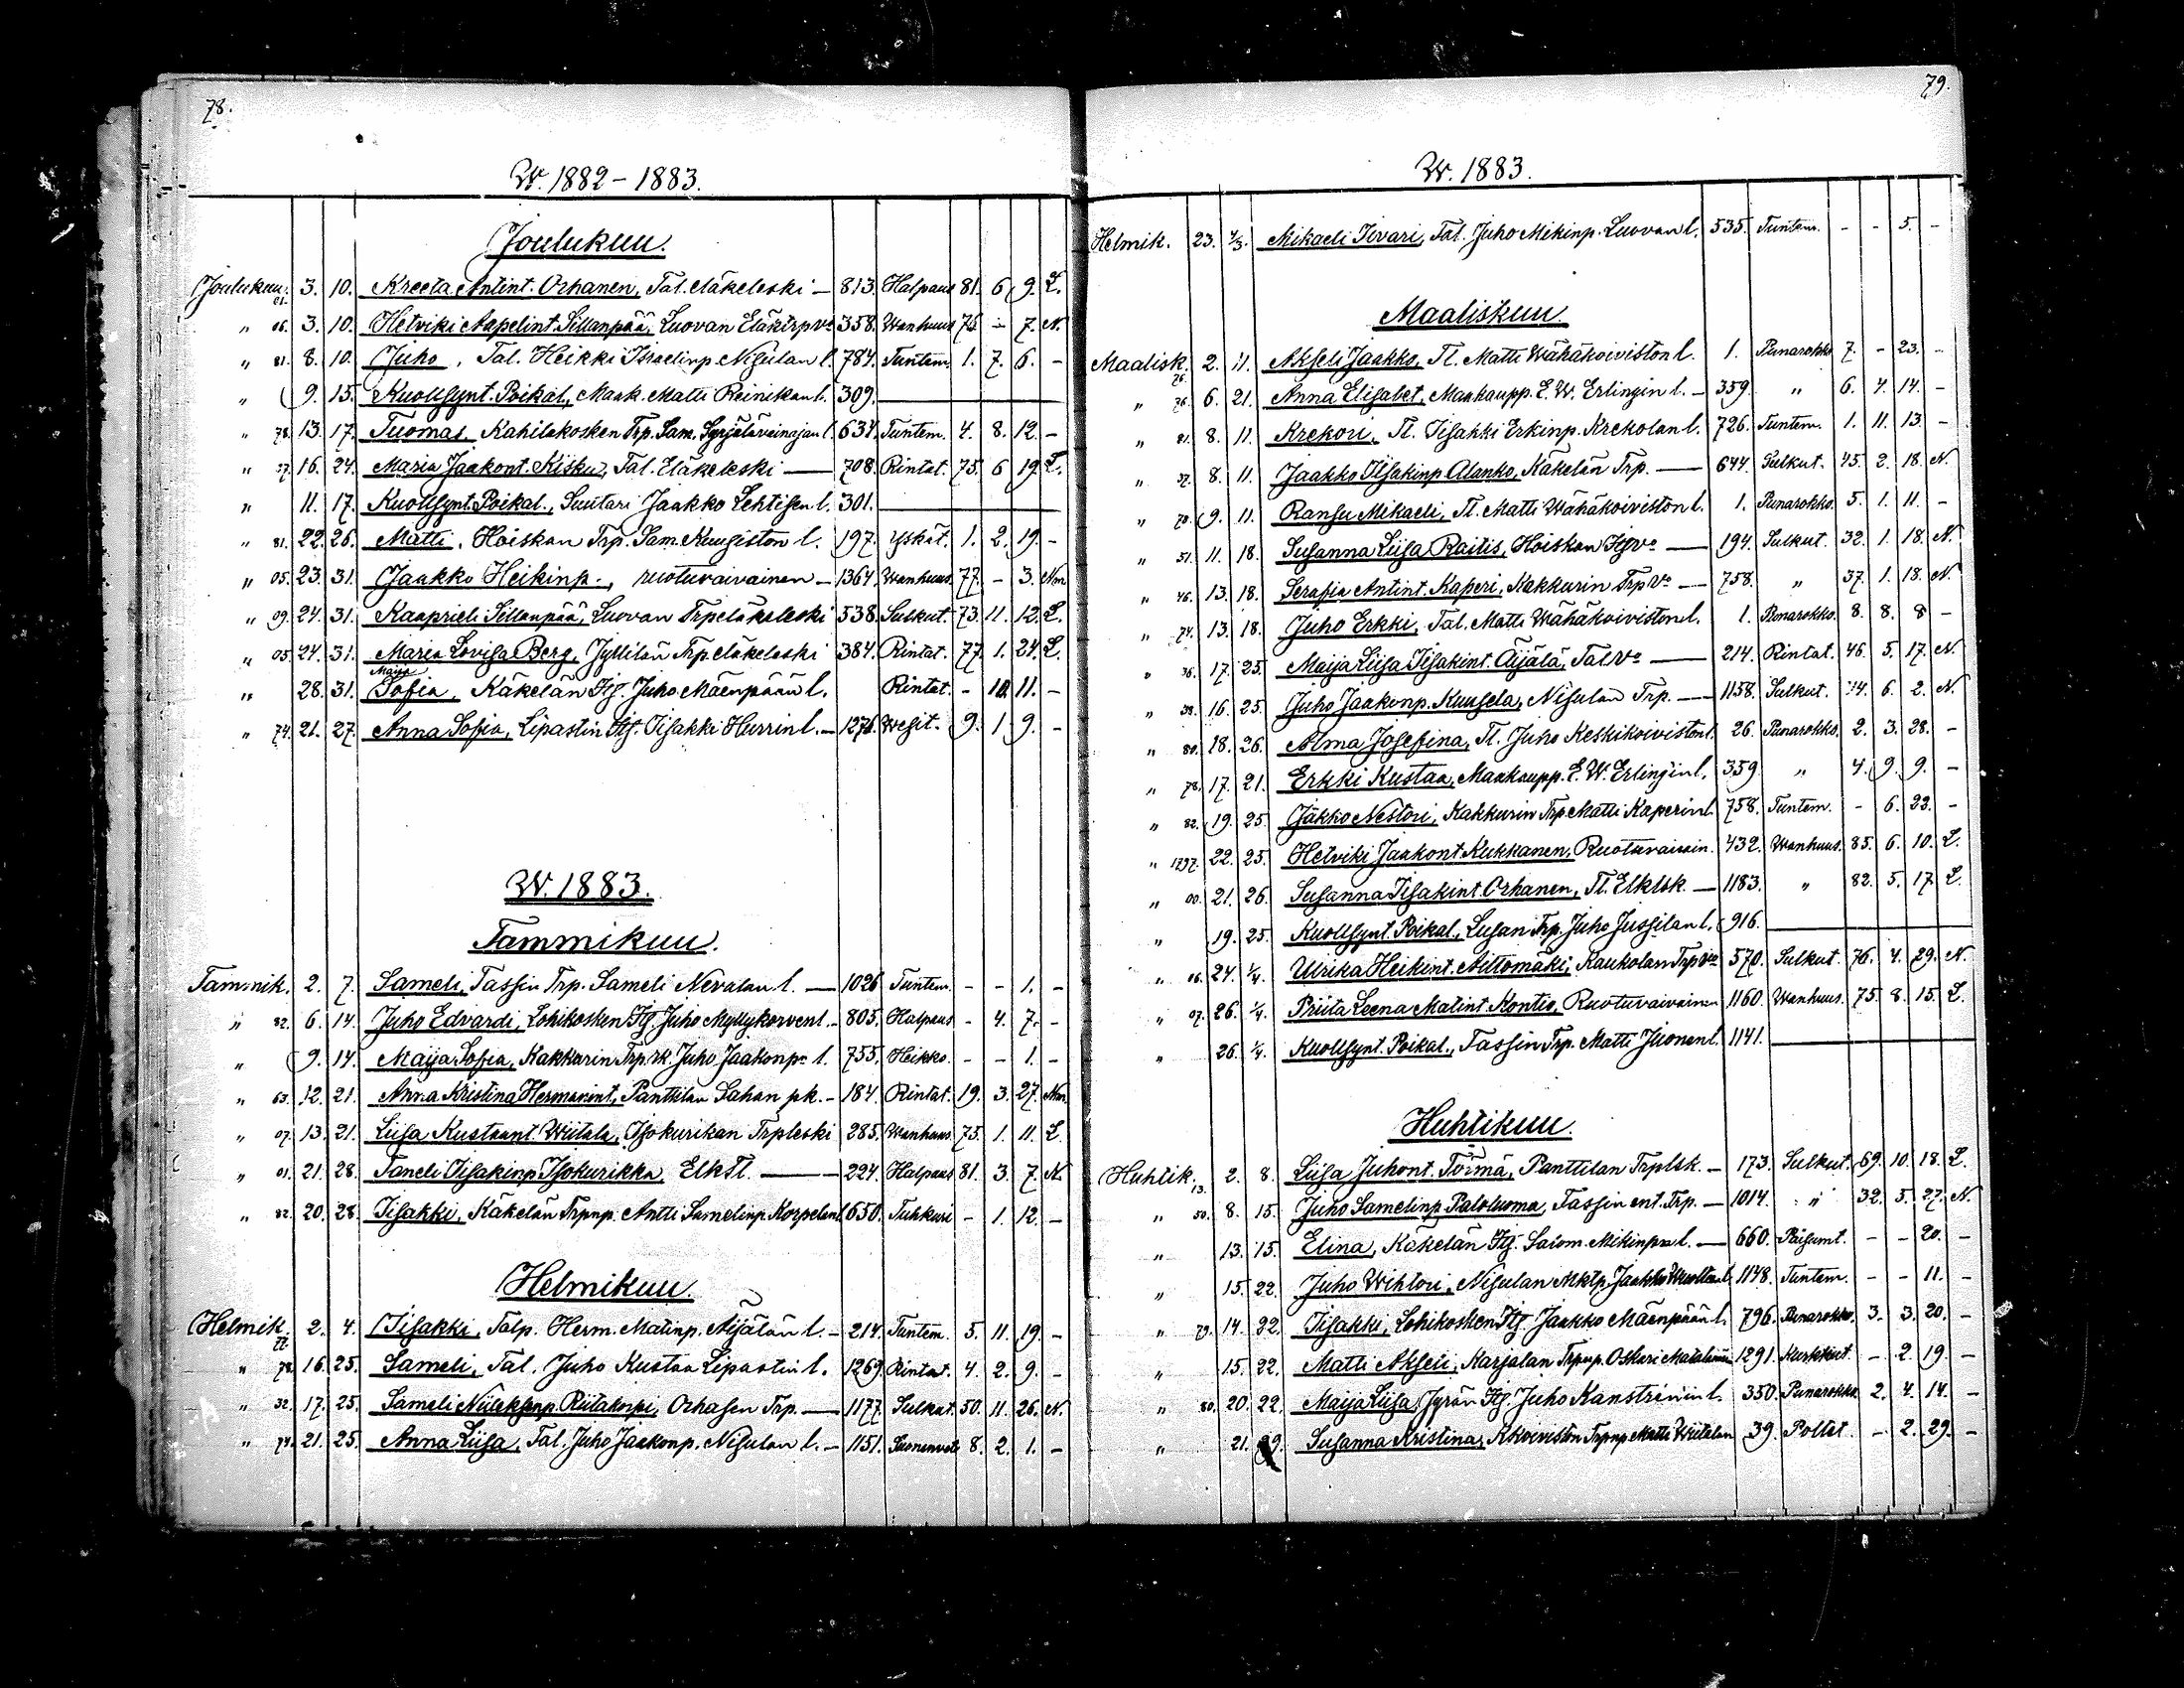 78.
W. 1882 - 1883.
Joulukuu.
Joulukuu. 01. 3. 10. Kreeta Antint. Orhanen, Tal. eläkeleski — 813. Halpaus 81. 6. 9. L.
" 06. 3. 10. Hetviki Aapelint. Sillanpää, Luovan Eläktrpvo 358. Wanhuus 76 - 7. N.
" 81. 8. 10. Juho, Tal. Heikki Israelinp. Nisulan l. 784. Tuntem. 1. 7. 6. -
" 9. 15. Kuollsynt. Poikal., Maak. Matti Reinikan l. 309.
" 78. 13. 17. Tuomas, Kahilakosken Trp. Sam. Syrjälävainajan l. 634. Tuntem. 4. 8. 12. -
" 07. 16. 24. Maria Jaakont. Kisku, Tal. Eläkeleski — 708. Rintat. 75. 6 19 L.
" 11. 17. Kuollsynt. Poikal., Suutari Jaakko Lehtisen l. 301.
" 81. 22. 26. Matti, Hoiskan Trp. Sam. Kuusiston l. 197. Yskät. 1. 2. 19. -
" 05. 23. 31. Jaakko Heikinp., ruotuvaivainen — 1364. Wanhuus. 77. - 3. Nm
" 09. 24. 31. Kaaprieli Sillanpää, Luovan Trpeläkeleski 538. Sulkut. 73. 11. 12. L.
" 05. 24. 31. Maria Lovisa Berg, Jyllilän Trp. eläkeleski 384. Rintat. 77. 1. 24. L.
" 28. 31. Maija Sofia, Käkelän Itg. Juho Mäenpään l. Rintat. - 10. 11. -
" 74. 21. 27. Anna Sofia, Lipastin Itg. Iisakki Hurrin l. — 1276. Wesit. 9. 1 9. -
W. 1883.
Tammikuu.
Tammik. 2. 7. Sameli, Tassin Trp. Sameli Nevalan l. — 1026 Tuntem. - - 1. -
" 82. 6. 14. Juho Edvardi, Lohikosken Itg. Juho Myllykorven l. — 805. Halpaus - 4. 7. -
" 9. 14. Maija Sofia, Kakkurin Trp. rk. Juho Jaakonpn l. 755. Heikko. - - 1. -
" 63. 12. 21. Anna Kristina Hermanint., Panttilan Sahan pk. — 184. Rintat. 19. 3. 27. Nm.
" 07. 13. 21. Liisa Kustaant. Wiitala, Isokurikan Trpleski 285. Wanhuus. 75. 1. 11. L.
" 01. 21. 28. Taneli Iisakinp. Isokurikka, Elk Tl. — 224. Halpaus 81. 3. 7. N.
" 82. 20. 28. Iisakki, Käkelän Trpnp. Antti Samelinp. Korpelan l 650. Tuhkuri - 1. 12. -
Helmikuu.
Helmik. 77. 2. 4. Iisakki, Talp. Herm. Matinp. Äijälän l. — 214. Tuntem. 5. 11. 19. -
" 78. 16. 25. Sameli, Tal. Juho Kustaa Lipastin l. 1269. Rintat. 4. 2. 9. -
" 32. 17. 25. Sameli Niileksenp. Riitakorpi, Orhasen Trp. — 1177. Sulkut. 50. 11. 26. N.
" 74. 21. 25. Anna Liisa, Tal. Juho Jaakonp. Nisulan l. — 1151. Suonenvet. 8. 2. 1. -
79.
W. 1883.
Helmik. 23. 4/3. Mikaeli Iivari, Tal. Juho Mikinp. Luovan l. 535. Tuntem. - - 5. -
Maaliskuu.
Maalisk. 76. 2. 11. Akseli Jaakko, Tl. Matti Wähäkoiviston l. 1. Punarokko 7. - 23. -
" 76. 6. 21. Anna Elisabet, Maakaupp. E. W. Erlingin l. — 359. " 6. 4. 14. -
" 81. 8. 11. Krekori, Tl. Iisakki Erkinp. Krekolan l. 726. Tuntem. 1. 11. 13. -
" 37. 8. 11. Jaakko Iisakinp. Alanko, Käkelän Trp. — 644. Sulkut. 45. 2. 18. N.
" 78. 9. 11. Ransu Mikaeli, Tl. Matti Wähäkoiviston l. 1. Punarokko. 5. 1. 11. -
" 51. 11. 18. Susanna Liisa Raitis, Hoiskan Itgvo — 194. Sulkut. 32. 1. 18. N.
" 46. 13. 18. Serafia Antint. Kaperi, Kakkurin Trpvo — 758. " 37. 1. 18. N.
" 74. 13. 18. Juho Erkki, Tal. Matti Wähäkoiviston l. 1. Punarokko. 8. 8. 8 -
" 36. 17. 25. Maija Liisa Iisakint. Äijälä, Tal. Vo — 214. Rintat. 46. 5. 17. N.
" 38. 16. 25. Juho Jaakonp. Kuusela, Nisulan Trp. — 1158. Sulkut. 44. 6. 2. N.
" 80. 18. 26. Alma Josefina, Tl. Juho Keskikoiviston l. 26. Punarokko. 2. 3. 28. -
" 78. 17. 21. Erkki Kustaa, Maakaupp. E. W. Erlingin l. 359. " 4. 9. 9. -
" 82. 19. 25. Jaakko Nestori, Kakkurin Trp. Matti Kaperin l. 758. Tuntem. - 6. 22. -
" 1797. 22. 25. Hetviki Jaakont. Kukkanen, Ruotuvaivain. 432. Wanhuus. 85. 6. 10. L.
" 00. 21. 26. Susanna Iisakint. Orhanen, Tl. Elklsk. — 1183. " 82. 5. 17. L.
" 19. 25. Kuollsynt. Poikal., Lusan Trp. Juho Jussilan l. 916.
" 06. 24. 1/4. Ulrika Heikint. Niittomäki, Kaukolan Trpvo 570. Sulkut. 76. 4. 29. N.
" 07. 26. 1/4. Priita Leena Matint. Kontio, Ruotuvaivainen 1160. Wanhuus. 75. 8. 15. L.
" 26. 1/4. Kuollsynt. Poikal., Tassin Trp. Matti Iluonen l. 1141.
Huhtikuu.
Huhtik. 13. 2. 8. Liisa Juhont. Törmä, Panttilan Trplsk. — 173. Sulkut. 69. 10. 18. L.
" 50. 8. 15. Juho Samelinp. Paloluoma, Tassin ent. Trp. — 1014. " 32. 5. 27. N.
" 13. 15. Elina, Käkelän Itg. Salom. Mikinpn l. — 660. Päisumt. - - 20. -
" 15. 22. Juho Wihtori, Nisulan Mktp. Jaakko l. 1148. Tuntem. - - 11. -
" 79. 14. 22. Iisakki, Lohikosken Itg. Jaakko Mäenpään l. 796. Punarokko. 3. 3. 20. -
" 15. 22. Matti Akseli, Karjalan Trpnp. Oskari 1291. Kurkkut. - 2. 19. -
" 80. 20. 22. Maija Liisa, Jyrän Itg. Juho Kanströmin l. 350. Punarokko. 2. 4. 14. -
" 21. 29. Susanna Kristina, Kkoiviston Trpnp. Matti Wiitalan 39. Poltet. - 2. 29. -